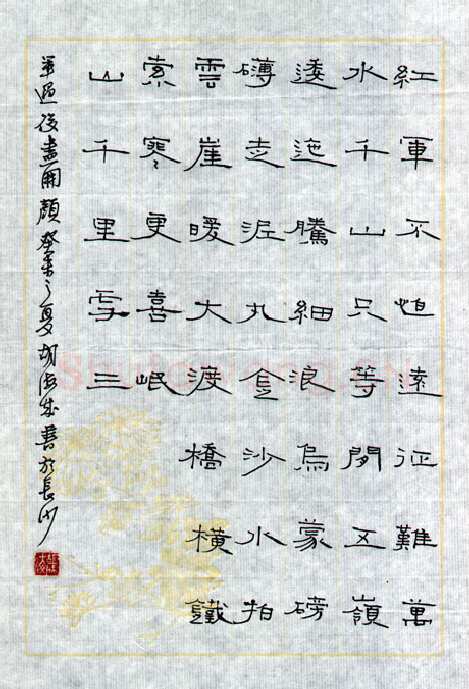 紅軍不怕遠征難萬
水千山只等閑五嶺
逶迤騰細浪烏蒙磅
礴走泥丸金沙水拍
雲崖暖大渡橋橫鐵
索寒更喜岷
山千里雪三
軍過後盡開顏 癸未之夏胡書於長沙